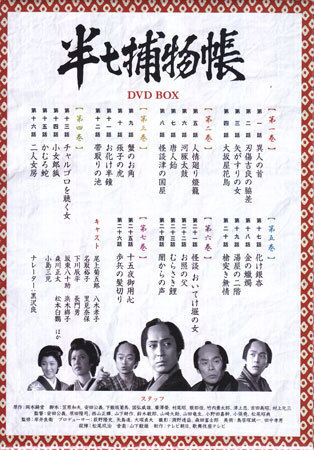 半七捕物帳
DVD BOX
【第一巻】
第一話 異人の首
第二話 刃傷吉良の脇差
第三話 矢がすりの女
第四話 大坂屋花鳥
【第二巻】
第五話 人情廻り燈籠
第六話 河豚太鼓
第七話 唐人飴
第八話 怪談津の国屋
【第三巻】
第九話 蟹のお角
第十話 張子の虎
第十一話 お化け半鐘
第十二話 帯取りの池
【第四巻】
第十三話 チャルゴロを聴く女
第十四話 小女郎狐
第十五話 かむろ蛇
第十六話 二人女房
【第五巻】
第十七話 化け銀杏
第十八話 金の蠟燭
第十九話 湯屋の二階
第二十話 槍突き無情
【第六巻】
第二十一話 怪談おいてけ堀の女
第二十二話 お照の父
第二十三話 むらさき鯉
第二十四話 闇からの声
【第七巻】
第二十五話 十五夜御用心
第二十六話 歩兵の髪切り
キャスト
尾上菊五郎
名取裕子
下川辰平
坂東八十助
森川正太
小島三児
八木孝子
里見奈保
長門勇
浜木綿子
松本白鸚
ほか
ナレーター：黒沢良
スタッフ